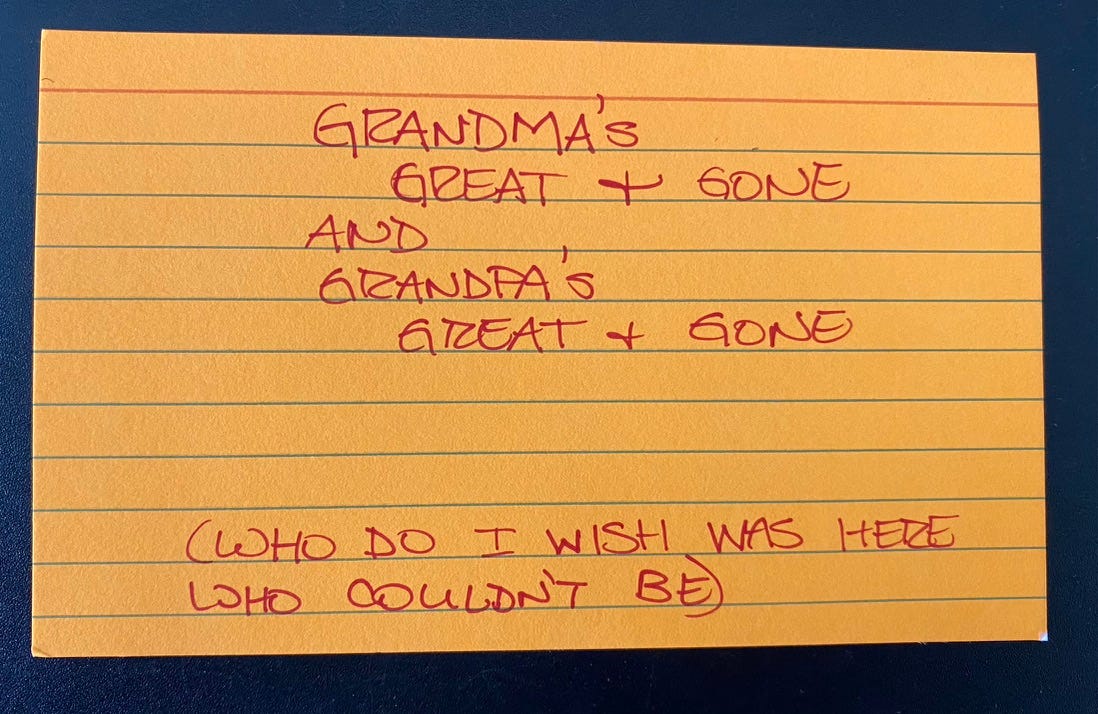 GRANDMA'S
GREAT + GONE
AND
GRANDPA'S
GREAT + GONE
(WHO DO I WISH WAS HERE
WHO COULDN'T BE)